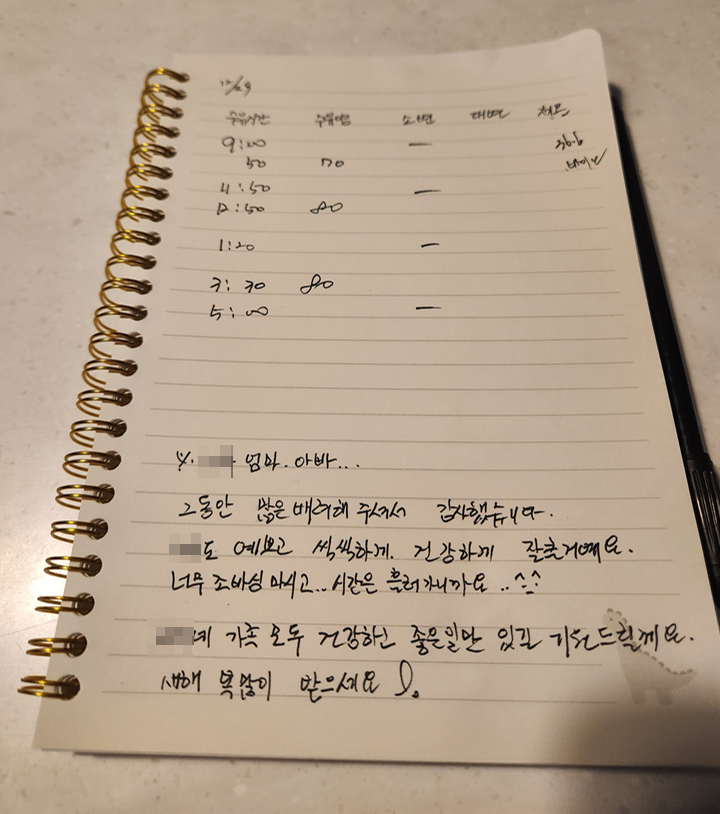 12/29
수유시간 수유량 소변 대변 체온
9:00 — 36.6
50 70
11:50 —
12:50 80
1:20 —
3:30 80
5:00 —
※. 엄마. 아빠...
그동안 많은 배려해 주셔서 감사했습니다.
도 예쁘고 씩씩하게. 건강하게 잘클거예요.
너무 조바심 마시고.. 시간은 흘러가니까요..^^
네 가족 모두 건강하고 좋은일만 있길 기원드릴께요.
새해 복많이 받으세요